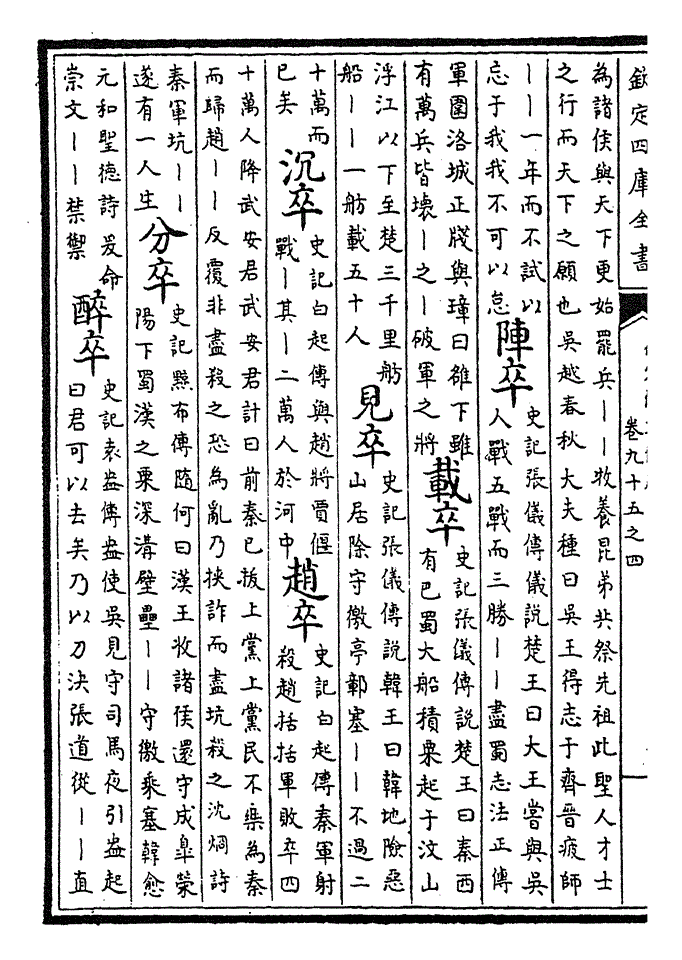 欽定四庫全書
卷九十五之四
為諸侯與天下更始罷兵丨丨牧養昆弟共祭先祖此聖人才士
之行而天下之願也吳越春秋大夫種曰吳王得志于齊晉疲師
丨丨一年而不試以
忘于我我不可以怠
陣卒
史記張儀傳儀說楚王曰大王嘗與吳
人戰五戰而三勝丨丨盡蜀志法正傳
軍圍洛城正牋與璋曰雒下雖
有萬兵皆壞丨之丨破軍之將
載卒
史記張儀傳說楚王曰秦西
有巴蜀大船積粟起于汶山
浮江以下至楚三千里舫
船丨丨一舫載五十人
見卒
史記張儀傳說韓王曰韓地險惡
山居除守徼亭鄣塞丨丨不過二
十萬而
已矣
沉卒
史記白起傳與趙將賈偃
戰丨其丨二萬人於河中
趙卒
史記白起傳秦軍射
殺趙括括軍敗卒四
十萬人降武安君武安君計曰前秦已拔上黨上黨民不樂為秦
而歸趙丨丨反覆非盡殺之恐為亂乃挾詐而盡坑殺之沈烱詩
秦軍坑丨丨
遂有一人生
分卒
史記黥布傳隨何曰漢王收諸侯還守成臯滎
陽下蜀漢之粟深溝壁壘丨丨守徼乘塞韓愈
元和聖德詩爰命
崇文丨丨禁禦
醉卒
史記袁盎傳盎使吳見守司馬夜引盎起
曰君可以去矣乃以刀決張道從丨丨直